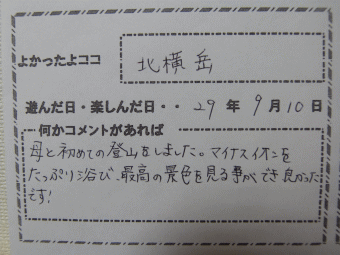 よかったよココ 北横岳
遊んだ日・楽しんだ日・・ 29 年 9 月 10 日
何かコメントがあれば
母と初めての登山をしました。マイナスイオンを
たっぷり浴び、最高の景色を見る事ができ良かった
です!